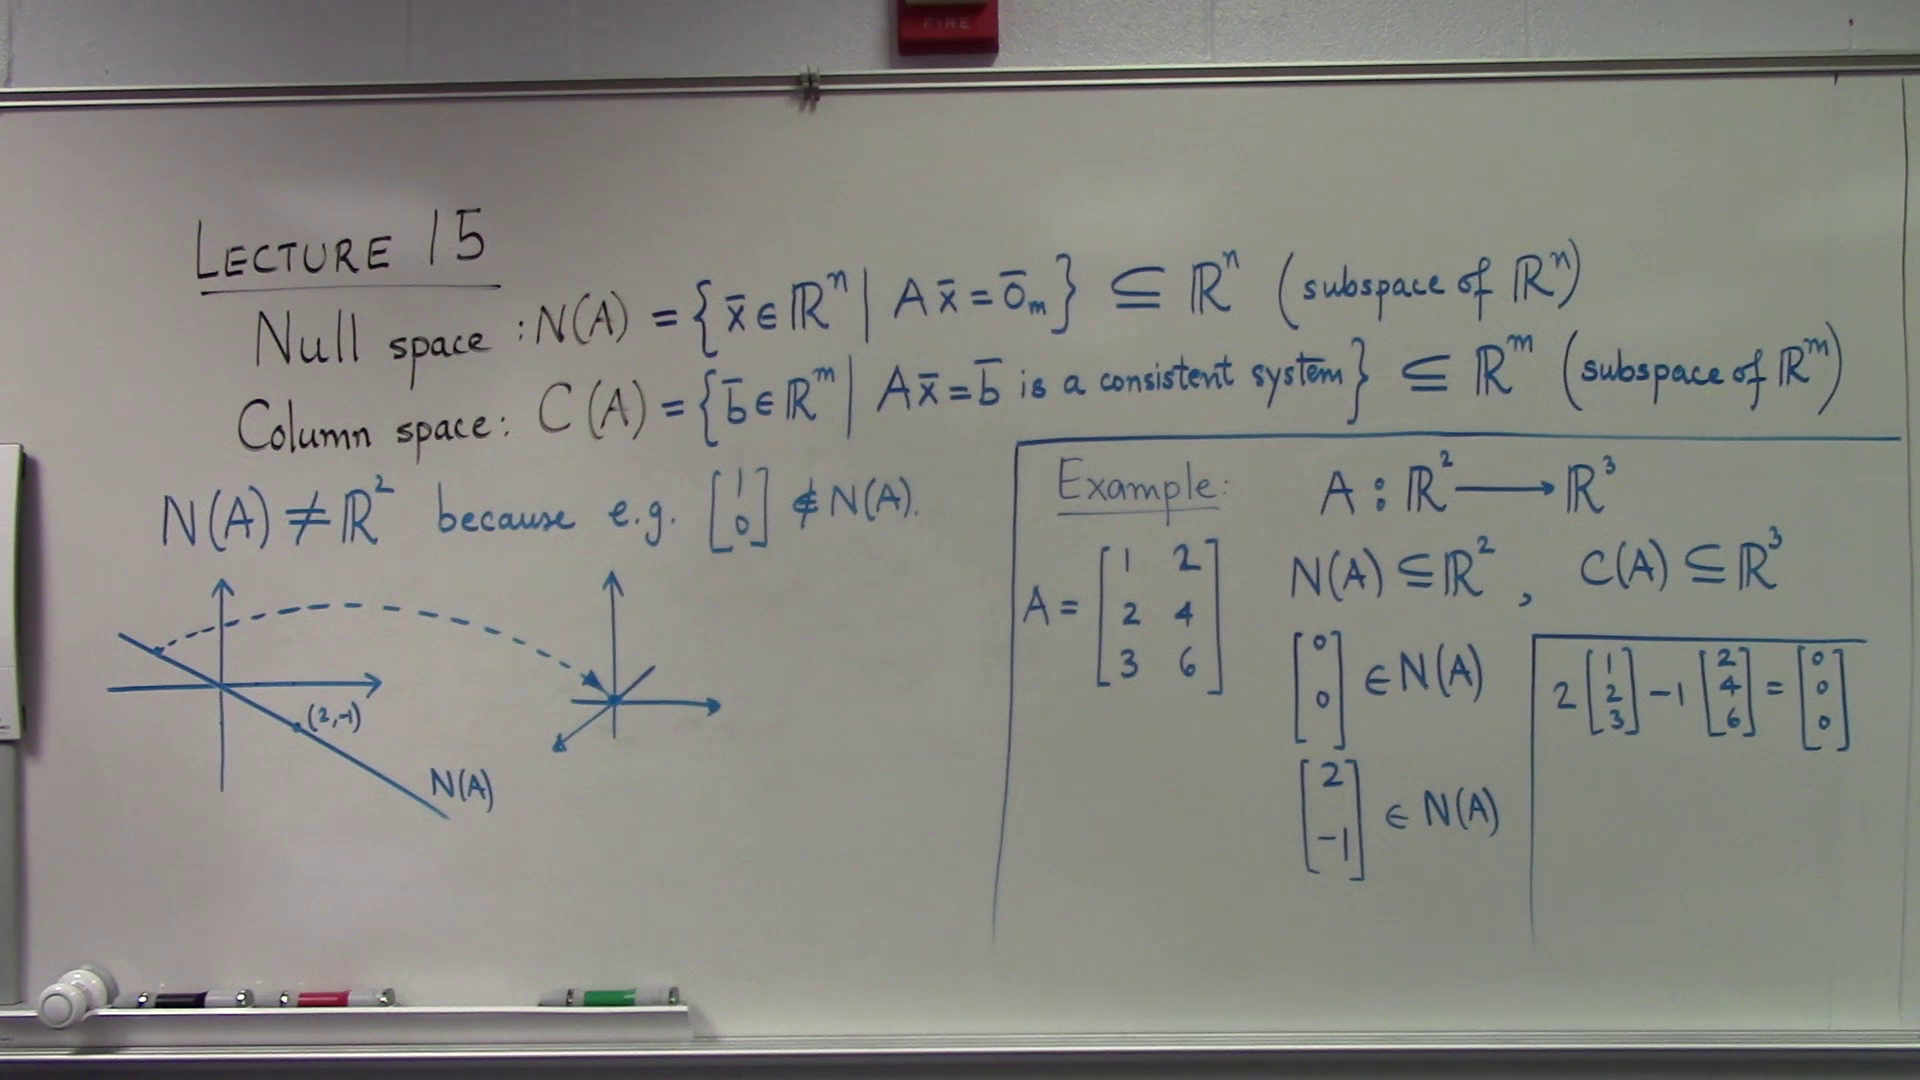 FIRE
LECTURE 15
Null space : N(A) = { x̄ ∈ ℝⁿ | A x̄ = 0̄ₘ } ⊆ ℝⁿ (subspace of ℝⁿ)
Column space: C(A) = { b̄ ∈ ℝᵐ | A x̄ = b̄ is a consistent system } ⊆ ℝᵐ (subspace of ℝᵐ)
N(A) ≠ ℝ² because e.g. [1 0] ∉ N(A).
(2,-1)
N(A)
Example: A : ℝ² ⟶ ℝ³
N(A) ⊆ ℝ² , C(A) ⊆ ℝ³
A = [1 2
2 4
3 6]
[0
0] ∈ N(A)
[2
-1] ∈ N(A)
2 [1 2 3] - 1 [2 4 6] = [0 0 0]